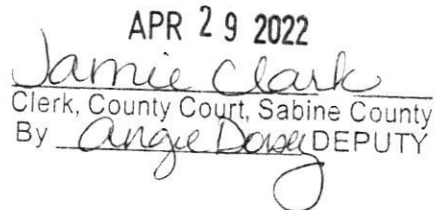 APR 29 2022
Jamie Clark
Clerk, County Court, Sabine County
By Angie Dorsey DEPUTY